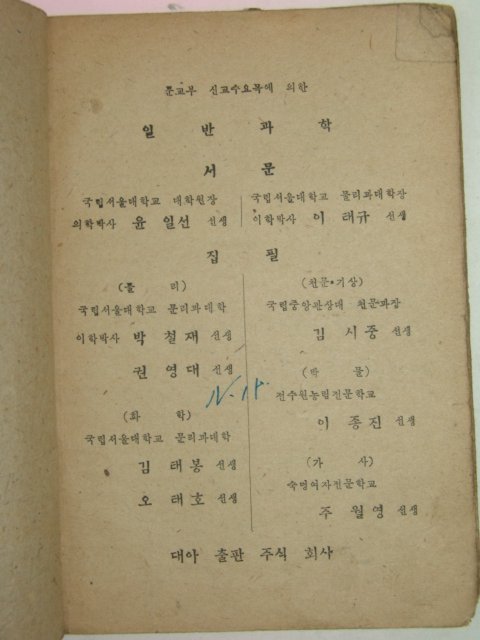 문교부 신교수요목에 의한
일반과학
서문
국립서울대학교 대학원장
의학박사 윤일선 선생
국립서울대학교 문리과대학장
이학박사 이태규 선생
집필
(물리)
국립서울대학교 문리과대학
이학박사 박철재 선생
권영대 선생
(화학)
국립서울대학교 문리과대학
김태봉 선생
오태호 선생
(천문·기상)
국립중앙관상대 천문과장
김시중 선생
(박물)
전수원농림전문학교
이종진 선생
(가사)
숙명여자전문학교
주월영 선생
대아 출판 주식 회사